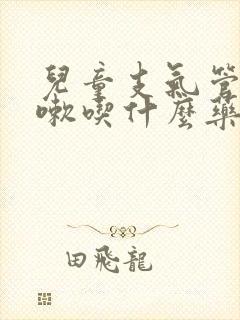 兒童支氣管
嗽喫什麼藥
田飛龍